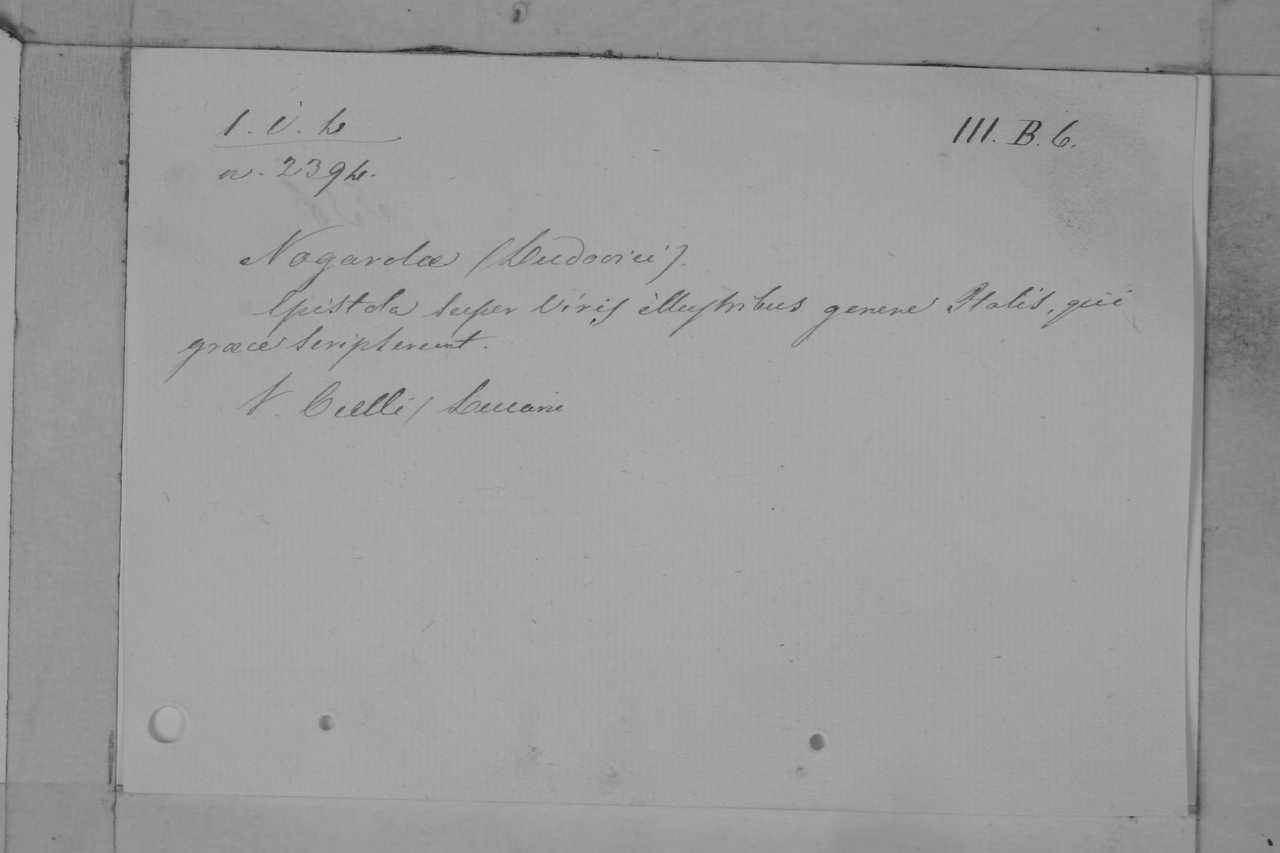 1. V. 4
n. 2394.
III. B. 6.
Nogarolæ (Ludovici).
Epistola super Viris illustribus genere Italis, qui
græce scripserunt.
V. Celli / Lucani